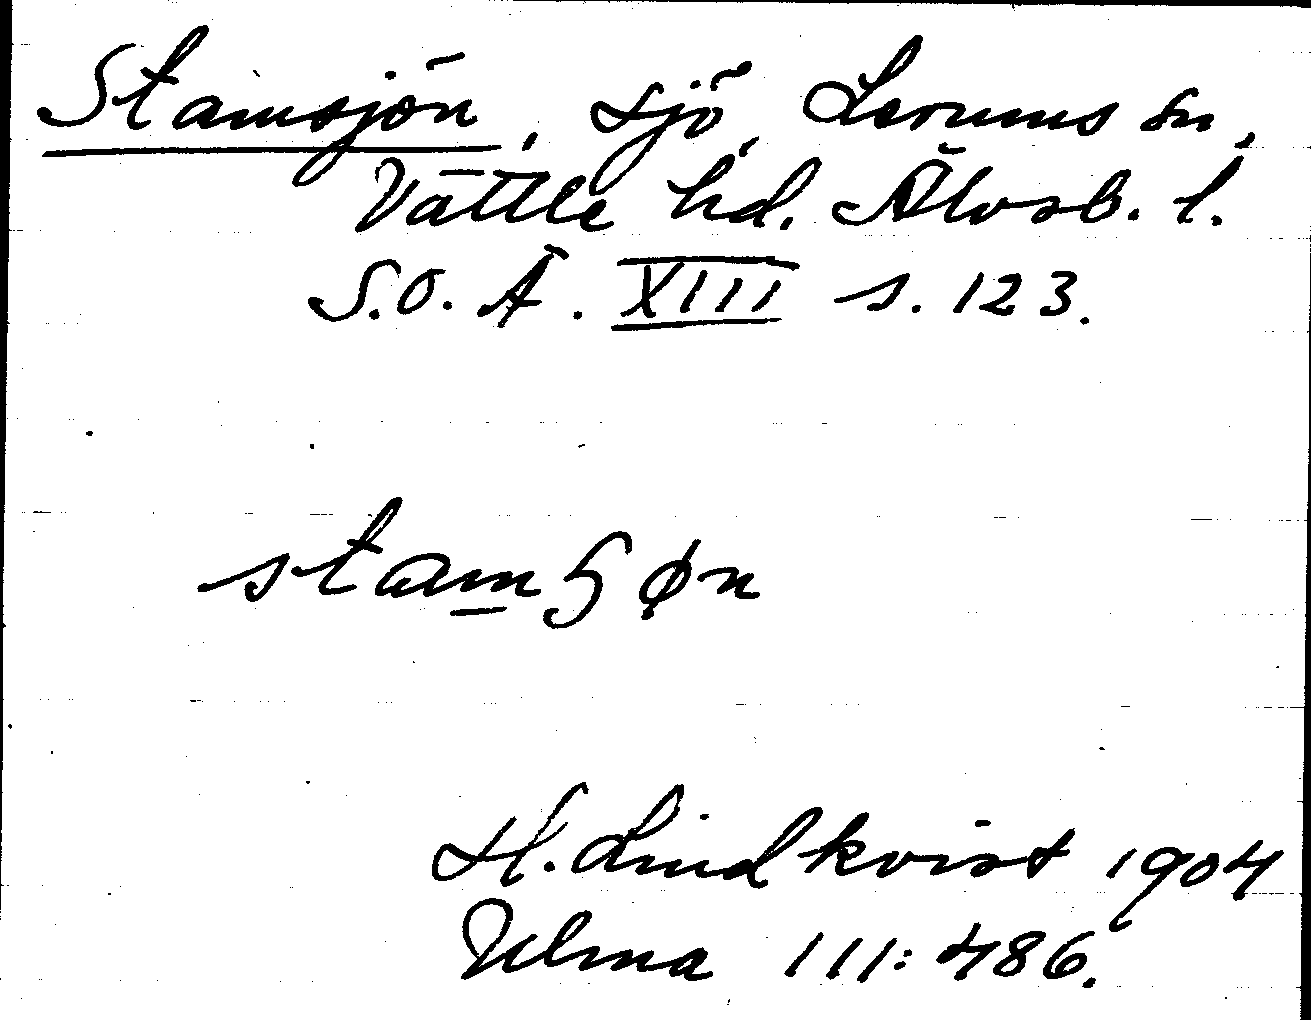 Stamsjön, sjö, Lerums sn,
Vättle hd. Älvsb. l.
S.O.Ä. XIII s. 123.
stamʃøn
H. Lindkvist 1904
Ulma 111:486.